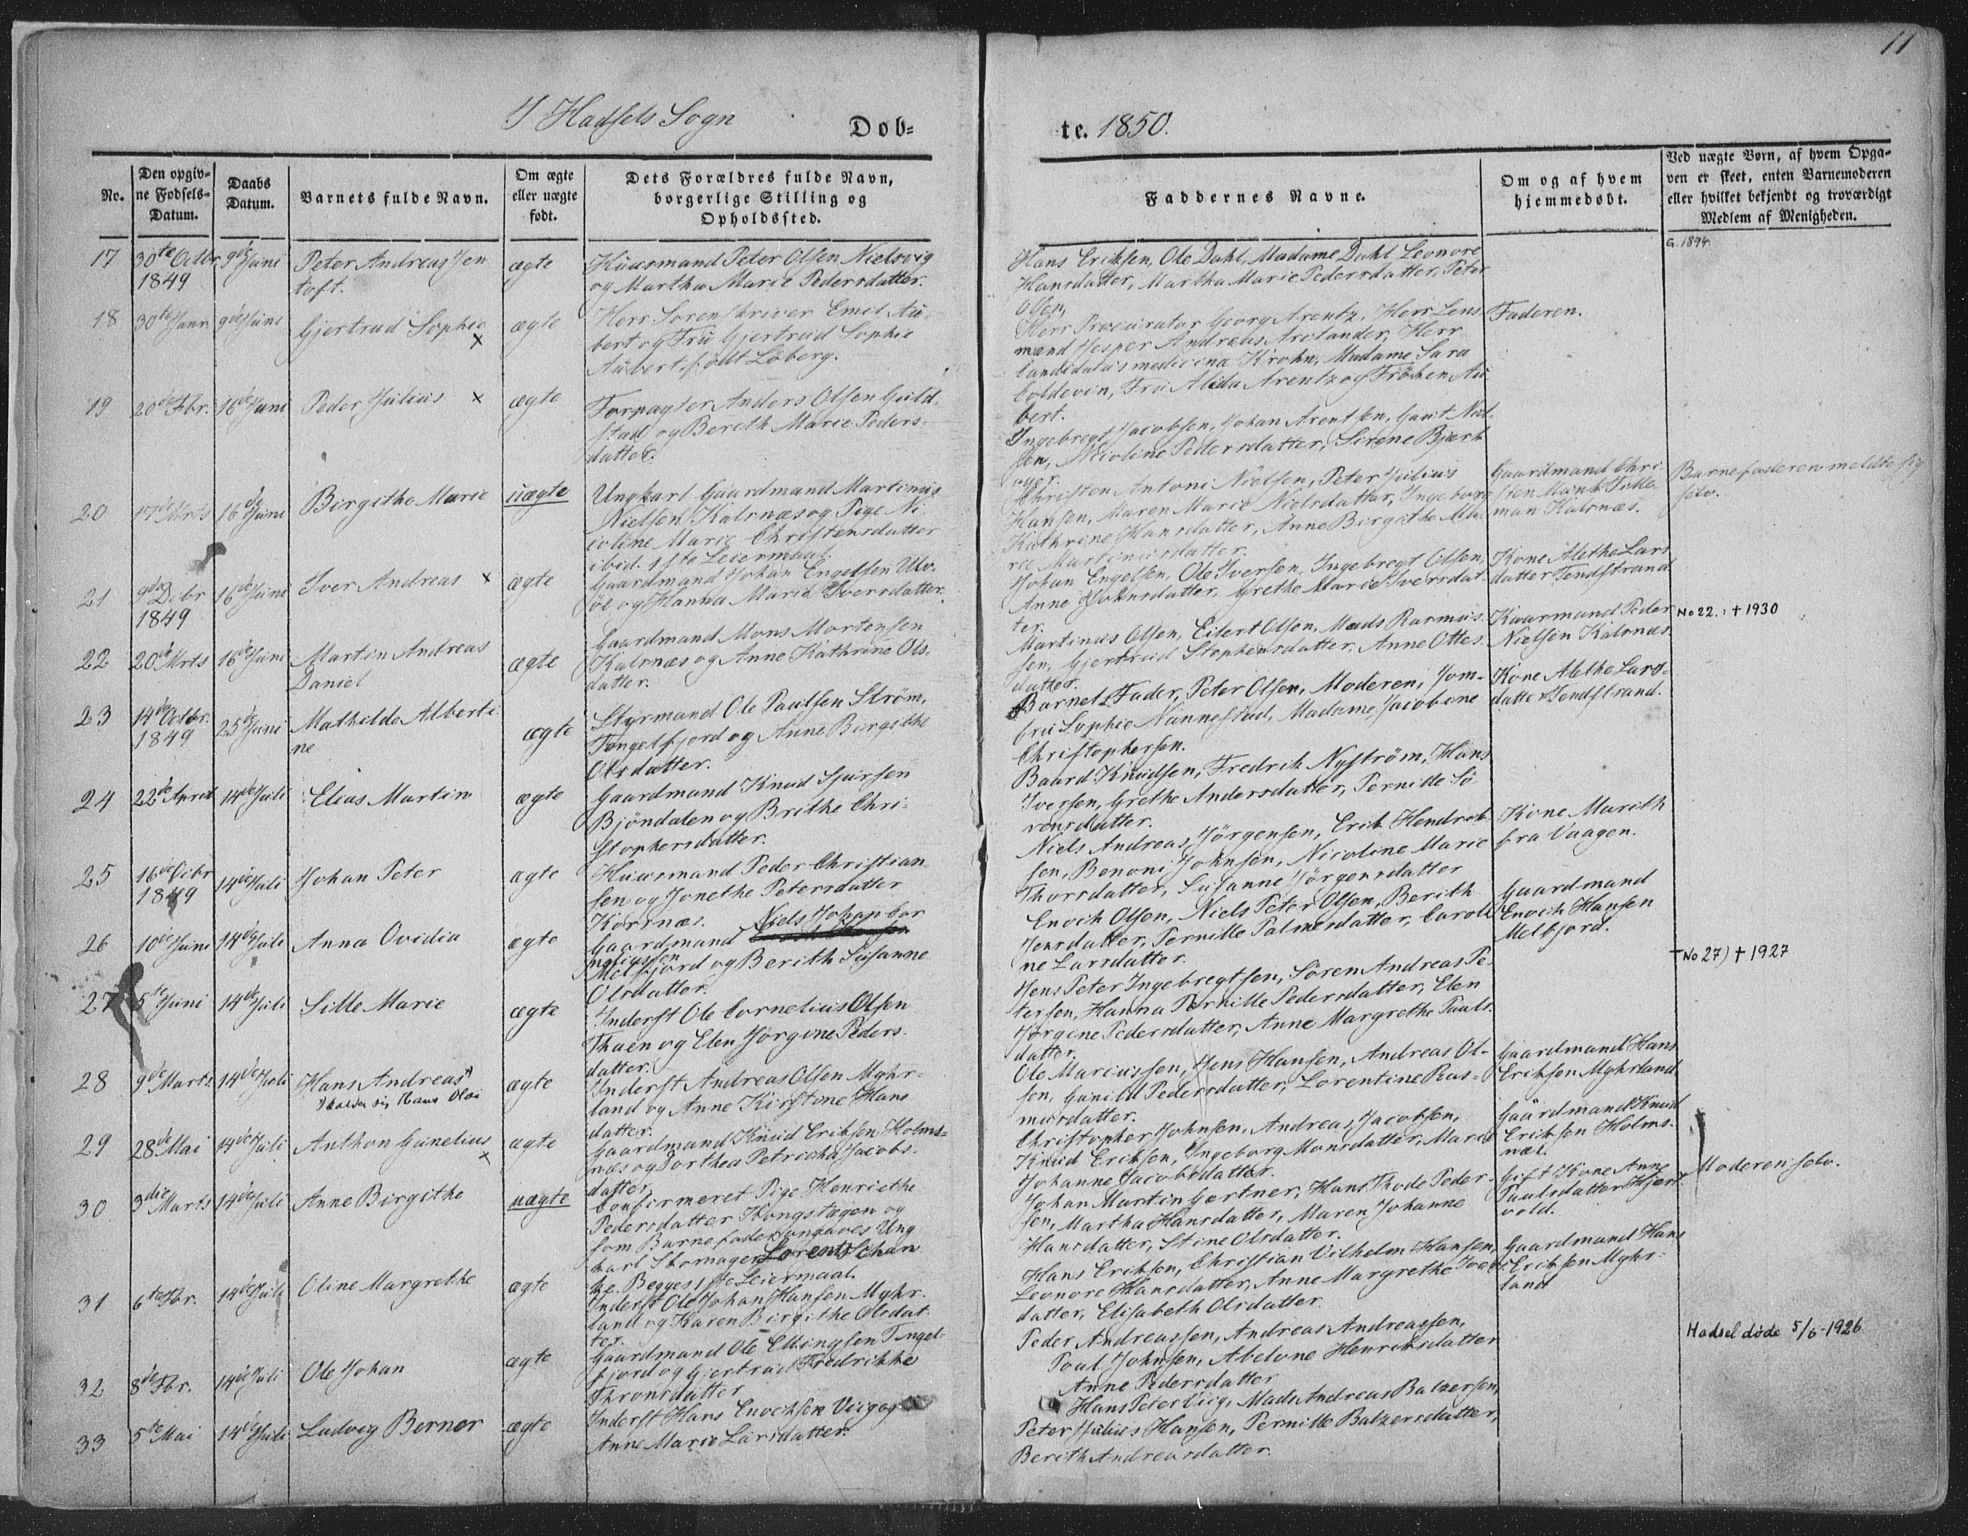 11
I Hadsels Sogn
Dob=
te. 1850.
No.
Den opgiv-
ne Fødsels-
Datum.
Daabs
Datum.
Barnets fulde Navn.
Om ægte
eller uægte
født.
Dets Forældres fulde Navn,
borgerlige Stilling og
Opholdssted.
Faddernes Navne.
Om og af hvem
hjemmedøbt.
Ved uægte Børn, af hvem Opga-
ven er skeet, enten Barnemoderen
eller hvilket bekjendt og troværdigt
Medlem af Menigheden.
17
30te Octbr
1849
9de Juni
Peter Andreas Jen
toft.
ægte
Huusmand Peter Olsen Nielsvig
og Martha Marie Pedersdatter.
Hans Eriksen, Ole Dahl, Madame Dahl, Leonore
Hansdatter, Martha Marie Pedersdatter, Peter
Olsen,
G. 1894.
18
30te Janr
9de Juni
Gjertrud Sophie
x
ægte
Herr Sorenskriver Emil Au-
bert og Frü Gjertrud Sophie
Aübert, født Loberg.
Herr Procurator Georg Arentz, Herr Lens
mand Jesper Andreas Arctander, Herr
Candidatus medicina Krohn, Madame Sara
Coldevin, Frü Alida Arentz og Frøken Aü
bert.
Faderen.
19
20de Fbr.
16de Juni
Peder Julius x
ægte
Forpagter Anders Olsen Guld-
stad og Berith Marie Peders-
datter.
Ingebregt Jacobsen, Johan Arentsen, Gaut Niel-
sen, Nicoline Pedersdatter, Sirene Bjerk
20
17de Mrts
16de Juni
Birgithe Marie
üægte
Ungkarl Gaardmand Martinus
Nielsen Kalsnæs og Pige Ni-
coline Marie Christensdatter
ibid. 1ste Leiermaal.
Christen Antoni Nielsen, Peter Julius
Hansen, Maren Marie Nielsdatter, Ingeborg
Kathrine Hansdatter, Anne Birgithe Ma-
rie Martinusdatter.
Gaardmand Chri-
sten
man Kalsnæs.
Barnefaderen meldte sig
selv.
21
9de Debr
1849
16de Juni
Iver Andreas x
ægte
Gaardmand Johan Engelsen Ulv-
öe og Hanna Marie Iversdatter.
Johan Engelsen, Ole Iversen, Ingebregt Olsen,
Anne Johnsdatter, Grethe Marie Iversdat-
ter.
Kone Alethe Lars
datter Sendstrand
22
20de Mrts
16de Juni
Martin Andreas
Daniel
ægte
Gaardmand Mons Mortensen
Kalsnæs og Anne Kathrine Ols-
datter.
Martinus Olsen, Eilert Olsen, Mads Rasmus-
sen, Gjertrud Stephensdatter, Anne Ottes
datter.
Huusmand Peder
Nielsen Kalsnæs.
No 22.: † 1930
23
14de Octbr.
1849
25de Juni
Mathilde Alberti-
ne
ægte
Styrmand Ole Paulsen Strøm,
Tengelfjord og Anne Birgithe
Olsdatter.
Barnets Fader, Peter Olsen, Moderen, Jom-
fru Sophie Nannestad, Madame Jacobine
Christophersen.
Kone Alethe Lars-
datter Sendstrand.
24
22de April
14de Juli
Elias Martin
ægte
Gaardmand Knud Sjursen
Bjöndalen og Brithe Chri-
stophersdatter.
Baard Knudsen, Fredrik Nyström, Hans
Iversen, Grethe Andersdatter, Pernille Sö-
rensdatter.
25
16de Octbr
1849
14de Juli
Johan Peter
ægte
Huusmand Peder Christian
sen og Jonethe Petersdatter
Korsnæs.
Niels Andreas Jörgensen, Erik Hendrik-
sen, Benoni Johnsen, Nicoline Marie
Thorsdatter, Susanne Jörgensdatter
Kone Marith
fra Vaagen.
26
10de Juni
14de Juli
Anna Ovidia
ægte
Gaardmand Niels Johan Cor
neliussen
Melfjord og Berith Susanne
Olsdatter.
Enoch Olsen, Niels Peter Olsen, Berith
Jensdatter, Pernille Palmesdatter, Caroli-
ne Larsdatter.
Gaardmand
Enoch Hansen
Melfjord.
27
5te Juni
14de Juli
Sille Marie
ægte
Inderst Ole Cornelius Olsen
Thaen og Elen Jörgine Peders-
datter.
Jens Peter Ingebregtsen, Sören Andreas Pe-
tersen, Hanna Pernille Pedersdatter, Elen
Jörgine Pedersdatter, Anne Margrethe Pauls-
datter.
No 27) † 1927
28
9de Martz
14de Juli
Hans Andreas
kalder sig Hans Olai
ægte
Inderst Andreas Olsen Myhr-
land og Anne Kirstine Hans
datter.
Ole Mariussen, Jens Hansen, Andreas Ol-
sen, Gunild Pedersdatter, Lorentine Ras-
musdatter.
Gaardmand Hans
Eriksen Myhrland
29
28de Mai
14de Juli
Anthon Gunelius
x
ægte
Gaardmand Knud Eriksen Holms-
næs og Dorthea Petricka Jacobs-
datter.
Christopher Johnsen, Andreas Jacobsen,
Knud Eriksen, Ingeborg Monsdatter, Maria
Johanne Jacobsdatter.
Gaardmand Knud
Eriksen Holms-
næs.
30
3die Marts
14de Juli
Anne Birgithe
uægte
Confirmeret Pige Henriethe
Pedersdatter Kongstagen og
som Barnefader angaves Ung
karl Skomager Lorents Johan
Begges 1ste Leiermaal.
Johan Martin Gertner, Hans Thode Peder-
sen, Martha Hansdatter, Maren Johanne
Hansdatter, Stine Olsdatter.
Gift Kone Anne
Paulsdatter
vold.
Moderen selv.
31
6te Fbr.
14de Juli
Oline Margrethe
ægte
Inderst Ole Johan Hansen Myhr-
land og Karen Birgithe Olsdat-
ter.
Hans Eriksen, Christian Vilhelm Hansen,
Leonore Hansdatter, Anne Margrethe Ivers-
datter, Elisabeth Olsdatter.
Gaardmand Hans
Eriksen Myhr-
land
32
8de Fbr.
14de Juli
Ole Johan
ægte
Gaardmand Ole Ellingsen Tingel-
fjord og Gjertrud Fredrikke
Thronsdatter
Peder Andreassen, Andreas Andreassen,
Poul Johnsen, Abelone Henriksdatter
Anne Pedersdatter
Hadsel døde 5/6-1926
33
5te Mai
14de Juli
Ludvig Berner
ægte
Inderst Hans Enochsen Viig og
Anne Marie Larsdatter.
Hans Peter Viig, Mads Andreas Balzersen,
Peter Julius Hansen, Pernille Balzersdatter,
Berith Andreasdatter.